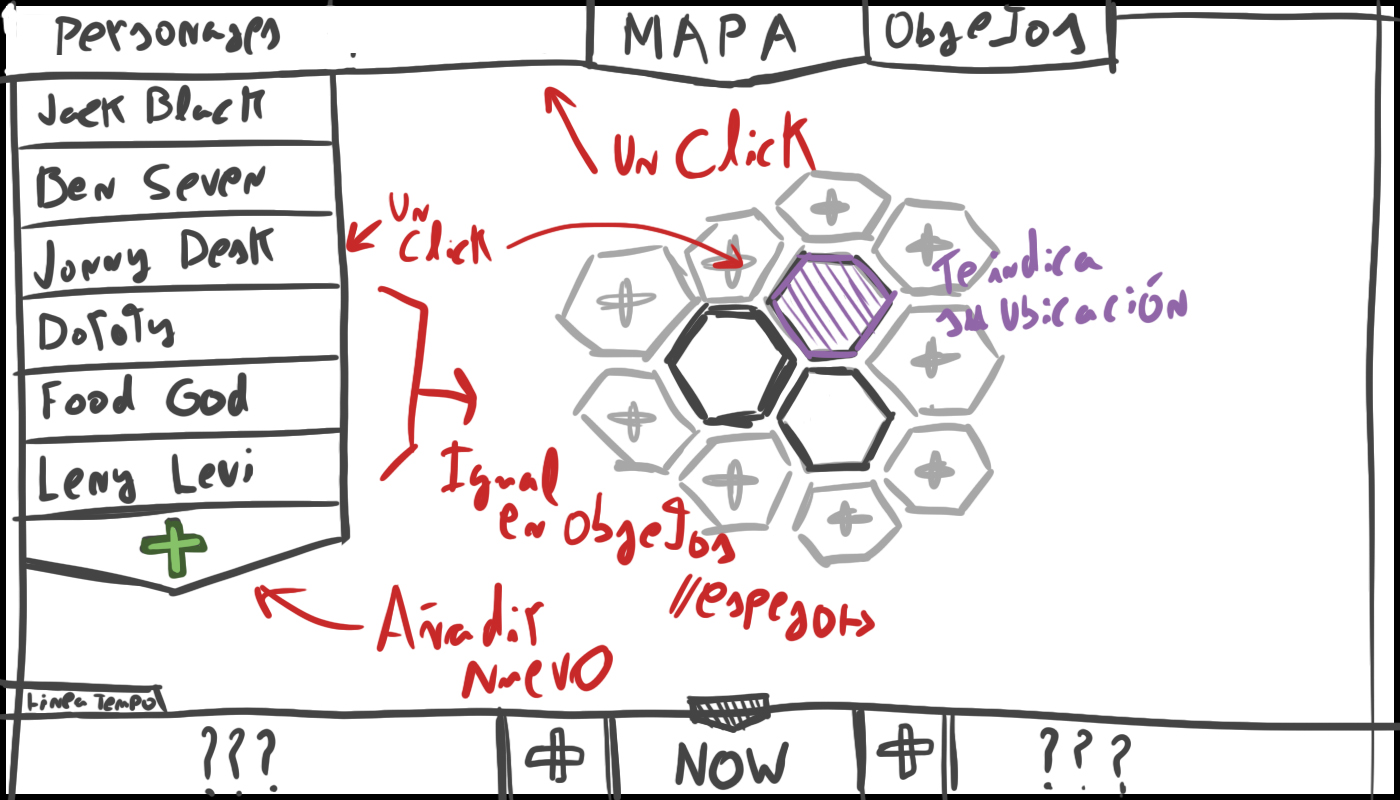 Personages
MAPA
Obgejos
Jack Black
Ben Seven
Jonny Desk
Dototy
Food God
Leny Levi
+
Un Click
Un
Click
Te indica
su ubicación
Igual
en obgejos
//espegor→
Añadir
nuevo
Linea Tempo
???
+
NOW
+
???